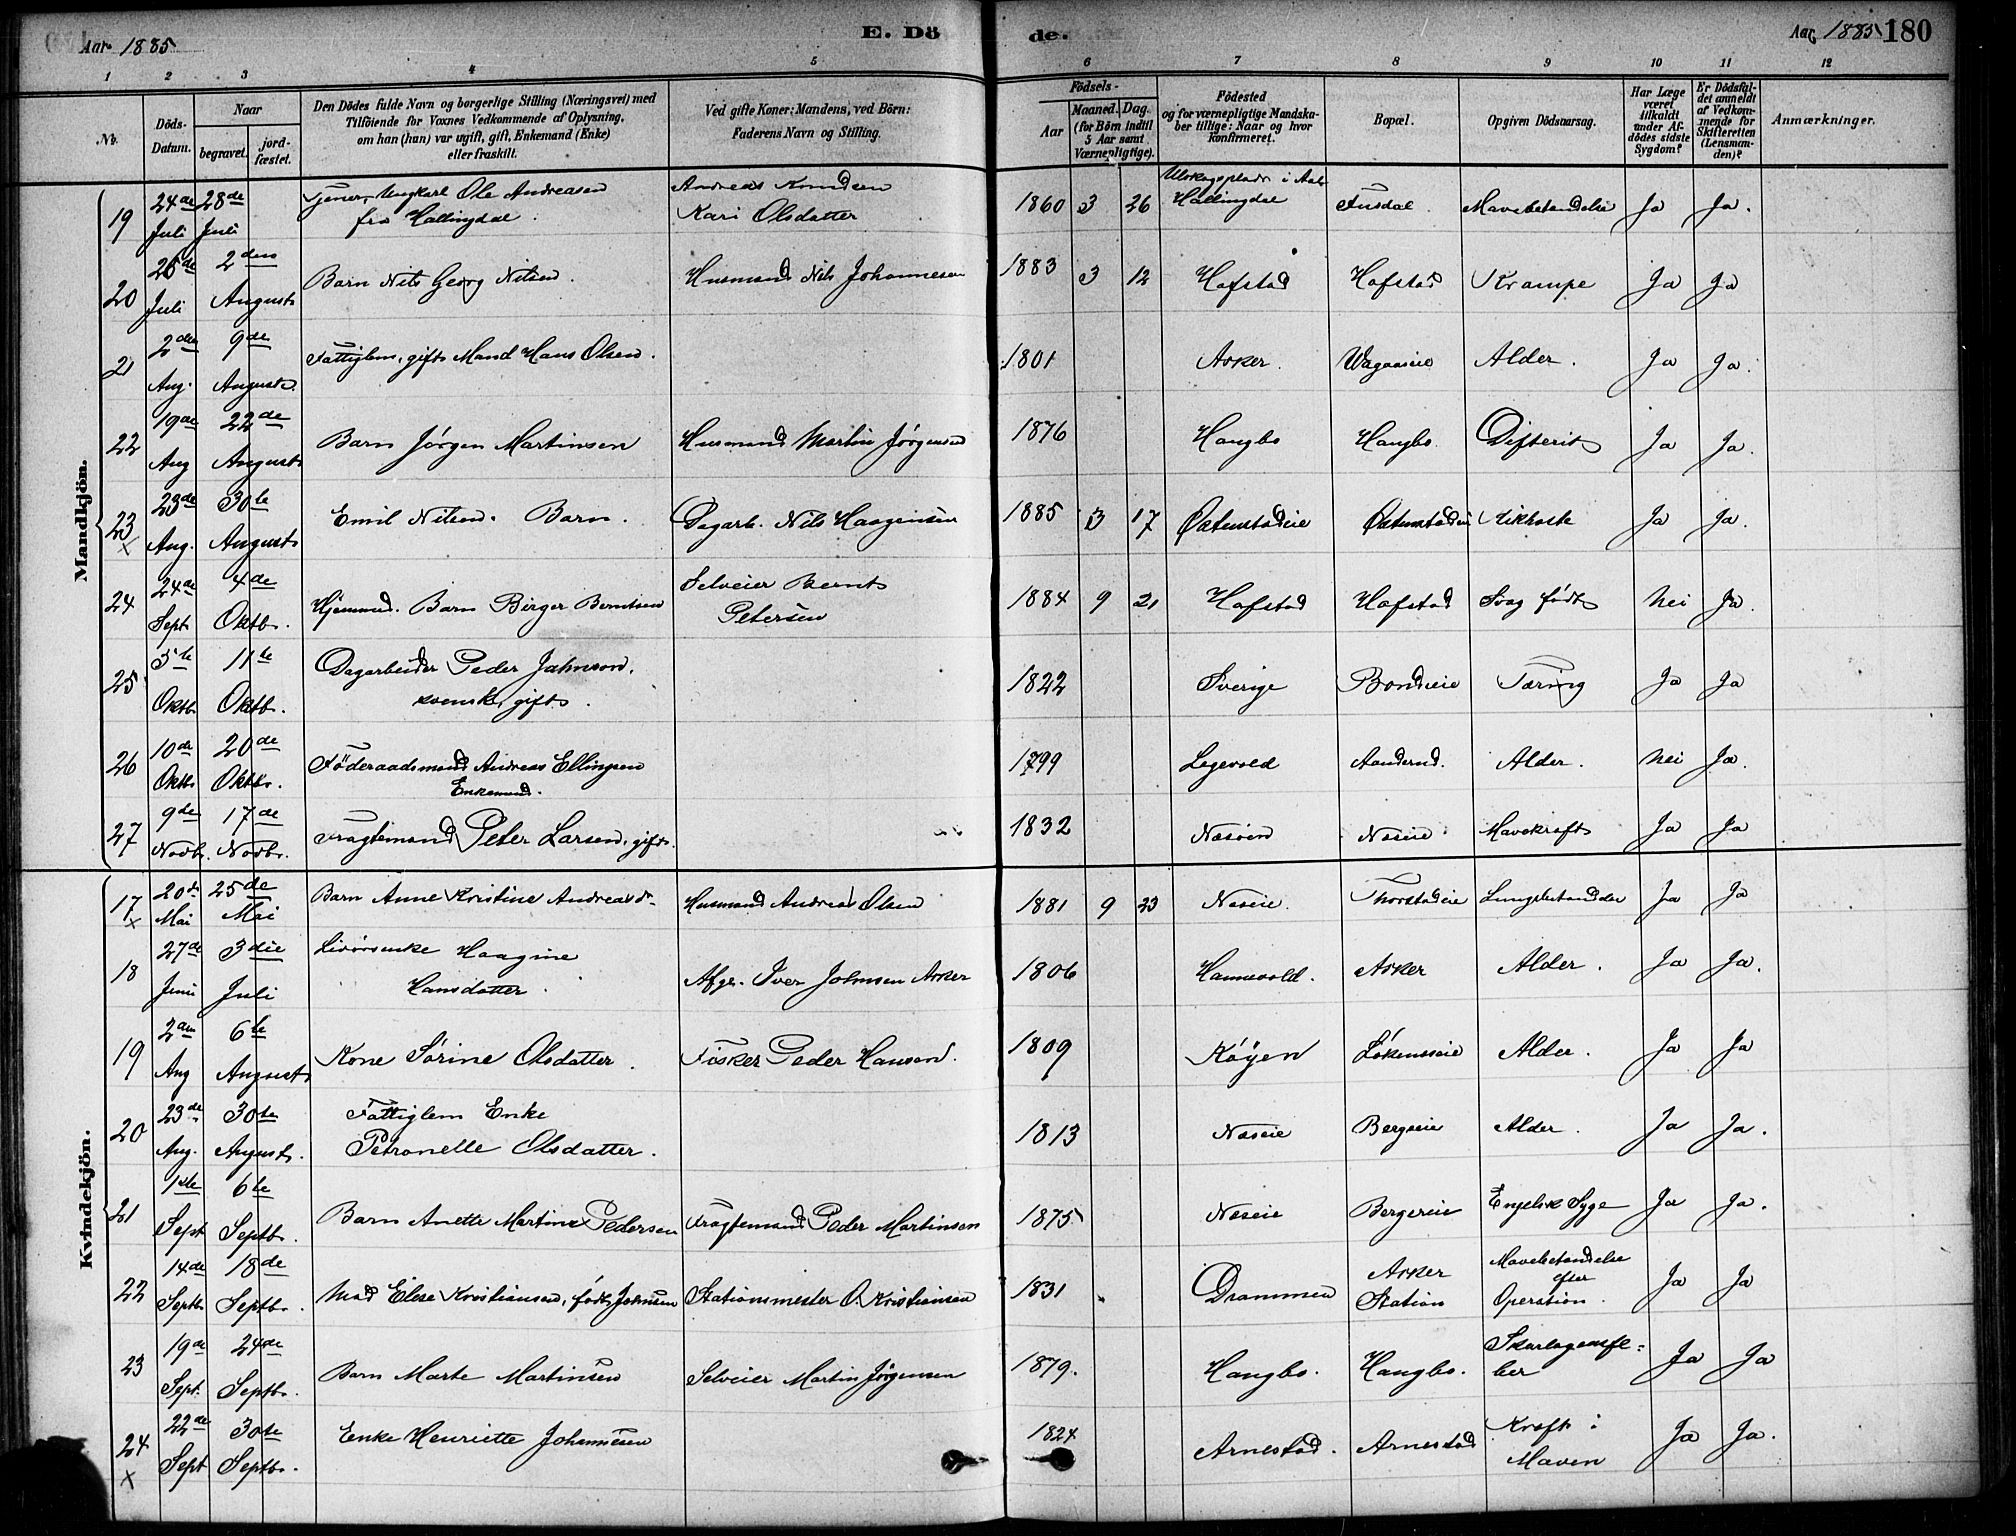 Aar 1885
E. Dö
de.
Aar 1885
180
1 2 3 4 5 6 7 8 9 10 11 12
No.
Döds-
Datum.
Naar
begravet.
jord-
fæstet.
Den Dödes fulde Navn og borgerlige Stilling (Næringsvei) med
Tilföiende for Voxnes Vedkommende af Oplysning,
om han (hun) var ugift, gift, Enkemand (Enke)
eller fraskilt.
Ved gifte Koner: Mandens, ved Börn:
Faderens Navn og Stilling.
Födsels-
Aar
Maaned. Dag.
(for Börn indtil
5 Aar samt
Værnepligtige).
Födested
og for værnepligtige Mandska-
ber tillige: Naar og hvor
konfirmeret.
Bopæl.
Opgiven Dödsaarsag.
Har Læge
været
tilkaldt
under Af-
dödes sidste
Sygdom?
Er Dödsfal-
det anmeldt
af Vedkom-
mende for
Skifteretten
(Lensman-
den)?
Anmærkninger.
Mandkjön.
19 24de Juli 28de Juli Tjener, Ungkarl Ole Andreasen fra Hallingdal. Andreas Knudsen Kari Olsdatter 1860 3 26 i Aal Hallingdal Fusdal. Mavebetændelse Ja Ja.
20 26de Juli 2den August Barn Nils Georg Nilsen. Husmand Nils Johannesen 1883 3 12 Hofstad Hofstad Krampe Ja Ja
21 2den Aug. 9de August. Fattiglem, gift Mand Hans Olsen. 1801 Asker. Alder. Ja Ja.
22 19de Aug 22de August Barn Jørgen Martinsen Husmand Martin Jørgensen 1876 Haugbo Haugbo. Difterit Ja Ja.
23 x 23de Aug. 30te August Emil Nilsen. Barn. Dagarb. Nils Haagensen 1885 3 17 Østenstadeie Østenstadeie Kikhoste Ja Ja.
24 24de Sept 4de Oktb. Hjemmed. Barn Birger Berntsen Selveier Bernt Petersen 1884 9 21 Hofstad Hofstad Svag født Nei Ja.
25 5te Oktb 11te Oktb. Dagarbeider Peder Jahnson, svensk, gift. 1822 Sverige Bondieie Tæring Ja Ja
26 10de Oktb 20de Oktbr. Föderaadsmand Andreas Ellingsen Enkemand. 1799 Legevold Alder. Nei Ja.
27 9de Novb. 17de Novb. Fragtemand Peter Larsen, gift. 1832 Næsøen Næseie Mavekræft Ja Ja
Kvindekjön.
17 x 20de Mai 25de Mai Barn Anne Kristine Andreasdr. Husmand Andreas Olsen 1881 9 23 Næseie. Thorstadeie Lungebetændelse Ja Ja
18 27de Juni 3die Juli Livörsenke Haagine Hansdatter. Afgr. Iver Johnsen Asker 1806 Hannevold. Asker Alder. Ja Ja.
19 2den Aug 6te August Kone Sörine Olsdatter. Fisker Peder Hansen. 1809 Køyen Løkenseie Alder. Ja Ja
20 23de Aug. 30te August. Fattiglem Enke Petronelle Olsdatter. 1813 Næseie Bergseie Alder. Ja Ja.
21 1ste Sept 6te Septb. Barn Anette Martine Pedersen Fragtemand Peder Martinsen 1875 Næseie Bergereie Engelsk Syge Ja Ja.
22 14de Septb. 18de Septb. Mad Elese Kristiansen, født Johnsen Stationsmester O. Kristiansen 1831 Drammen Asker Station Mavebetændelse efter Operation. Ja Ja
23 19de Sept. 24de Septb. Barn Marte Martinsen Selveier Martin Jørgensen 1879. Haugbo. Haugbo. Skarlagensfe-ber Ja Ja
24 x 22de Sept 30te Septb. Enke Henriette Johannesen 1824 Arnestad. Arnestad Kræft i Maven Ja Ja.